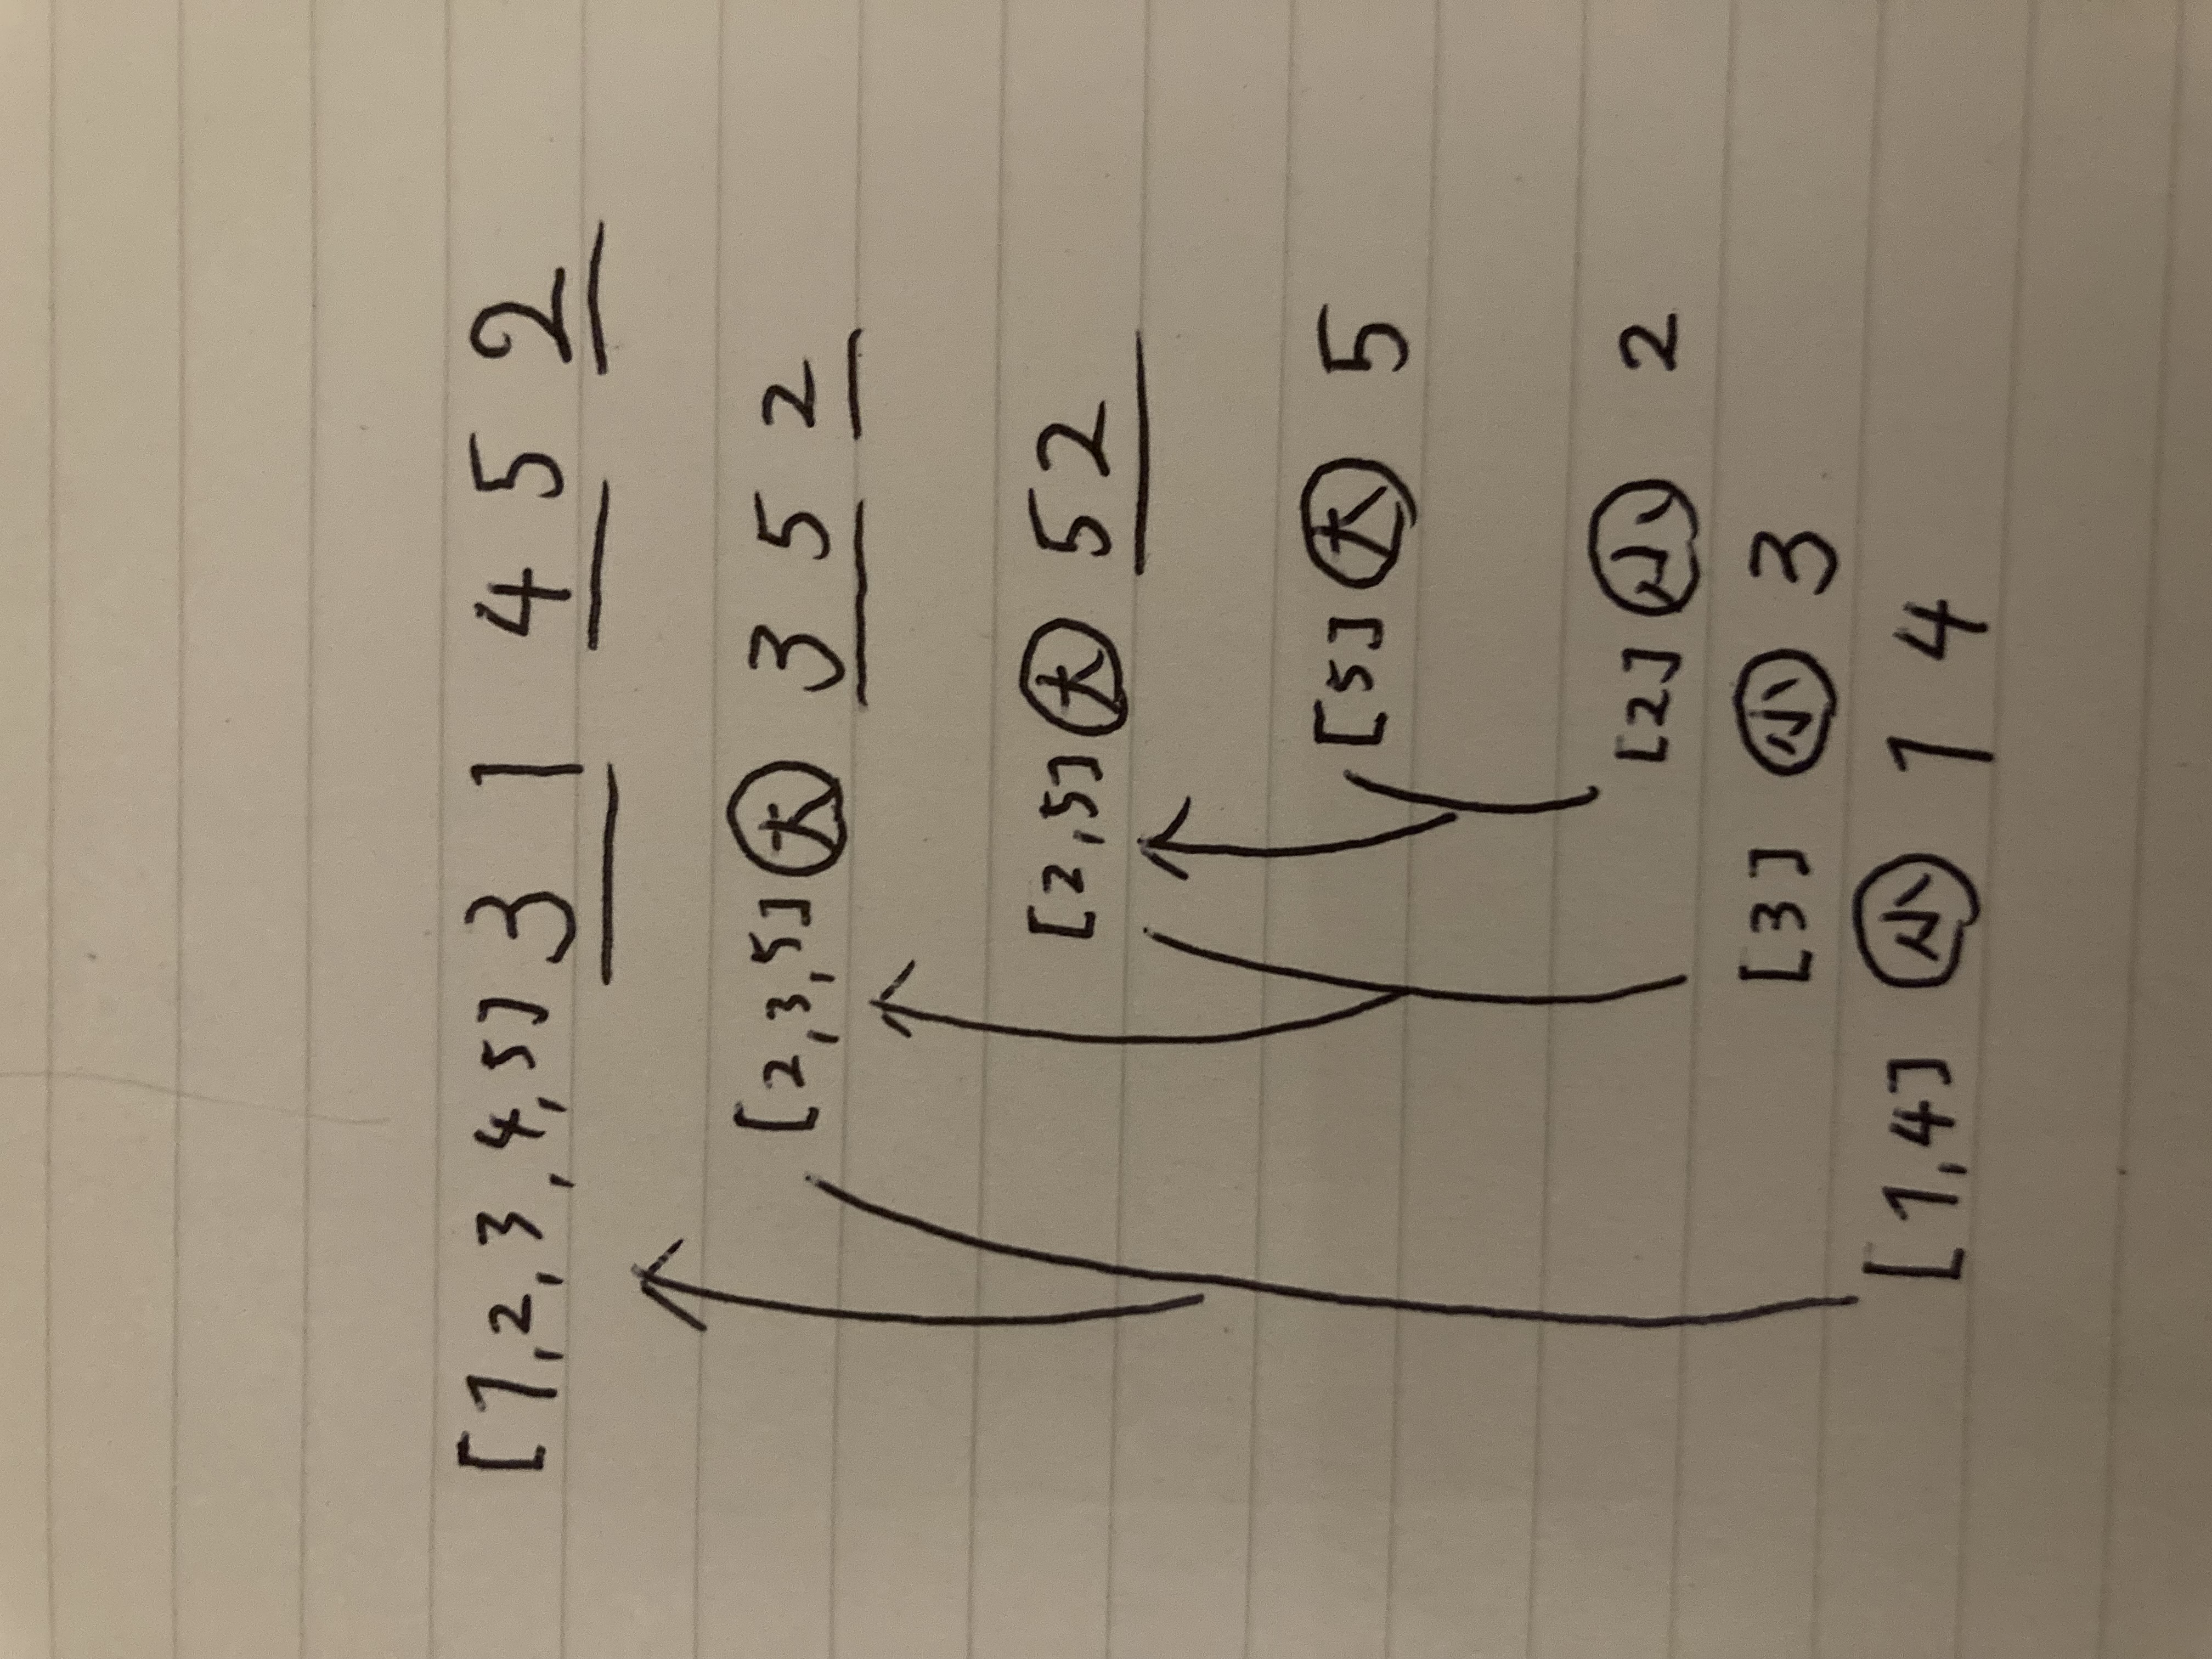 [1,2,3,4,5] 3 1 4 5 2
[2,3,5] 大 3 5 2
[2,5] 大 5 2
[5] 大 5
[2] 小 2
[3] 小 3
[1,4] 小 1 4